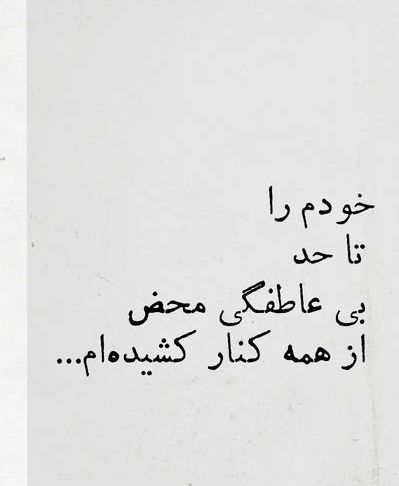 خودم را
تا حد
بی عاطفگی محض
از همه کنار کشیده‌ام...